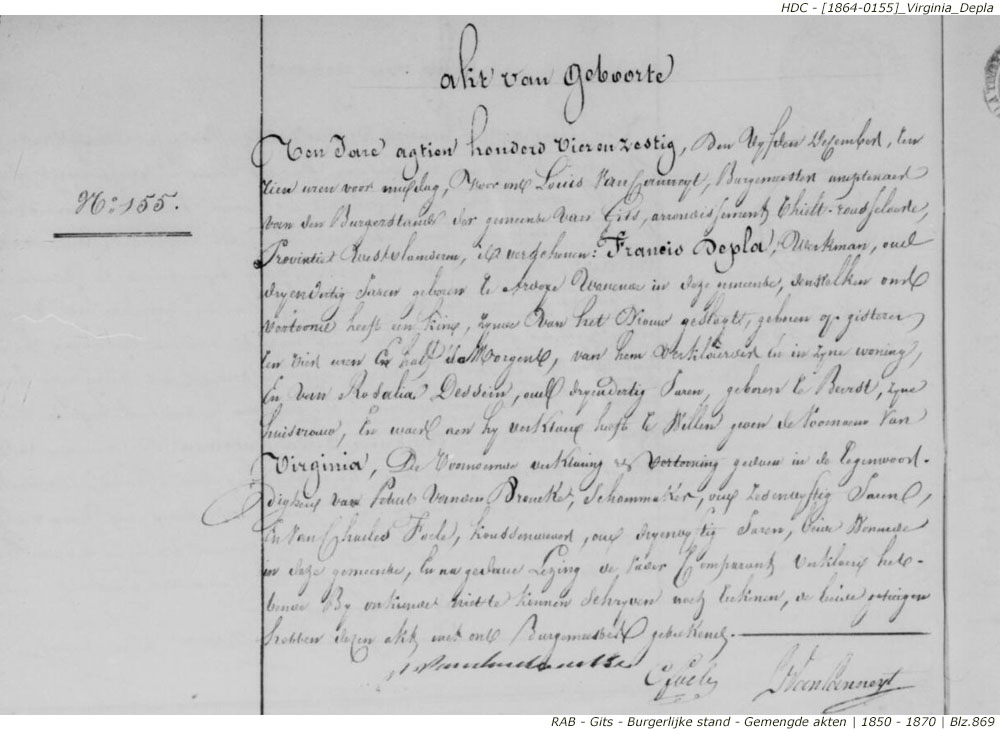 HDC - [1864-0155]_Virginia_Depla
akt van geboorte
N° 155.
Ten Jare agtien honderd vier en zestig, den vyfden December, ten
tien uren voor middag, voor ons Louis Burgemeester amptenaer
van den Burgerstand der gemeente van Gits, arrondissement Thielt-rousselaere,
Provintie Westvlaenderen, is verschenen: Francis Depla, Werkman, oud
dryendertig Jaren geboren te Ardoye Wonende in deze gemeente, denwelken ons
vertoond heeft een kind, zynde van het Vrouw geslagt, geboren op gisteren
ten vier uren en half 's Morgens, van hem verklaerder en in zyne woning,
En van Rosalia Dessein, oud dryendertig Jaren, geboren te Beerst, zyne
huisvrouw, en waer aen hy verklaerd heeft te Willen geven de voornaem van
Virginia, De Voornoemde verklaring en vertooning gedaen in de tegenwoor-
digheid van Vanden Broucke, Schoenmaker, oud zevenvyftig Jaren,
En van Charles Foele, oud dryenvyftig Jaren, beide Wonende
in deze gemeente, en na gedane Lezing de vader Comparant verklaerd heb-
bende By onkunde niet te kunnen Schryven noch teekenen, de beide getuigen
hebben dezen akt met ons Burgemeester geteekend.
RAB - Gits - Burgerlijke stand - Gemengde akten | 1850 - 1870 | Blz.869